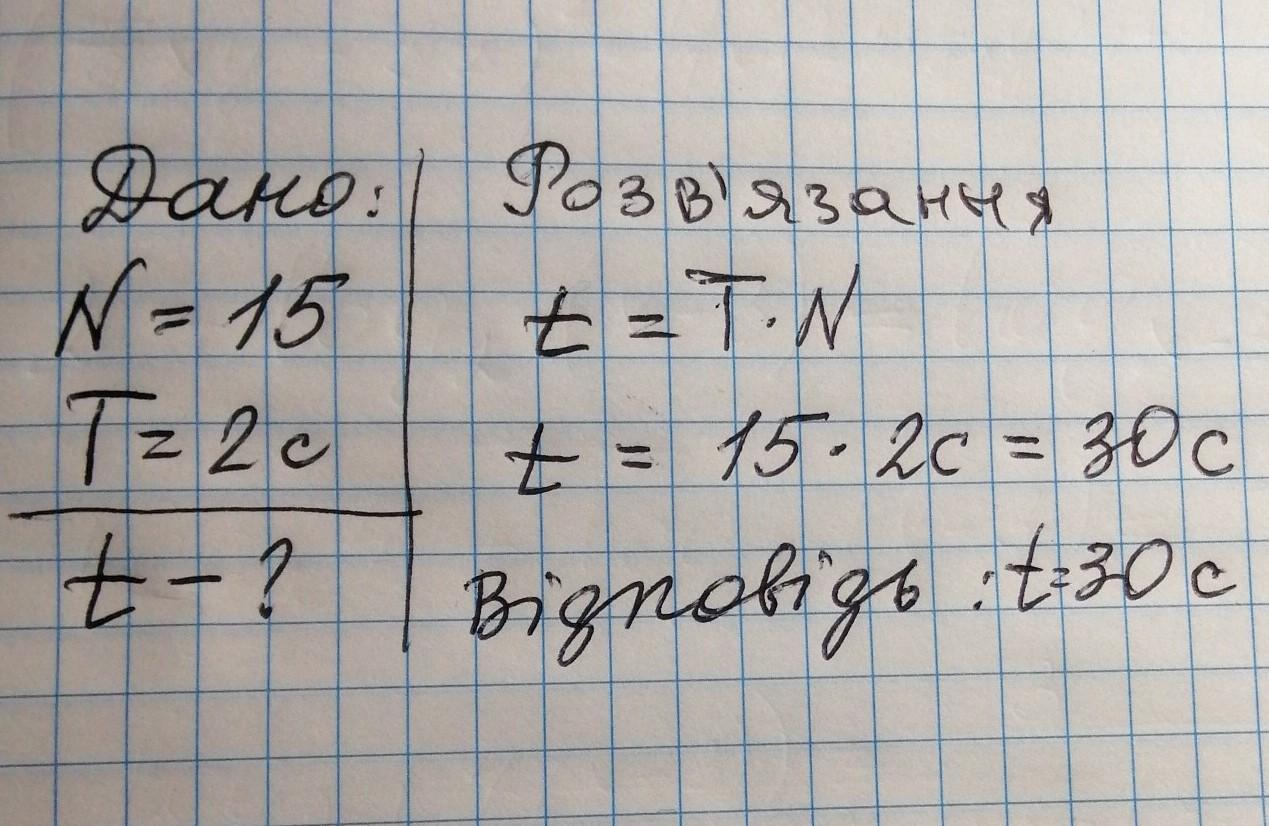 Дано:
N = 15
T = 2 с
t - ?
Розв'язання
t = T · N
t = 15 · 2с = 30 с
Відповідь : t = 30 с